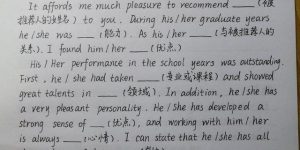 It affords me much pleasure to recommend ___ (被
推荐人的姓名) to you. During his/her graduate years
he/she was ___ (能力). As his/her ___ (与被推荐人的
关系), I found him/her ___ (优点).
His/Her performance in the school years was outstanding.
First, he/she had taken ___ (专业或课程) and showed
great talents in ___ (领域). In addition, he/she has
a very pleasant personality. He/She has developed a
strong sense of ___ (优点), and working with him/her
is always ___ (心情). I can state that he/she has all